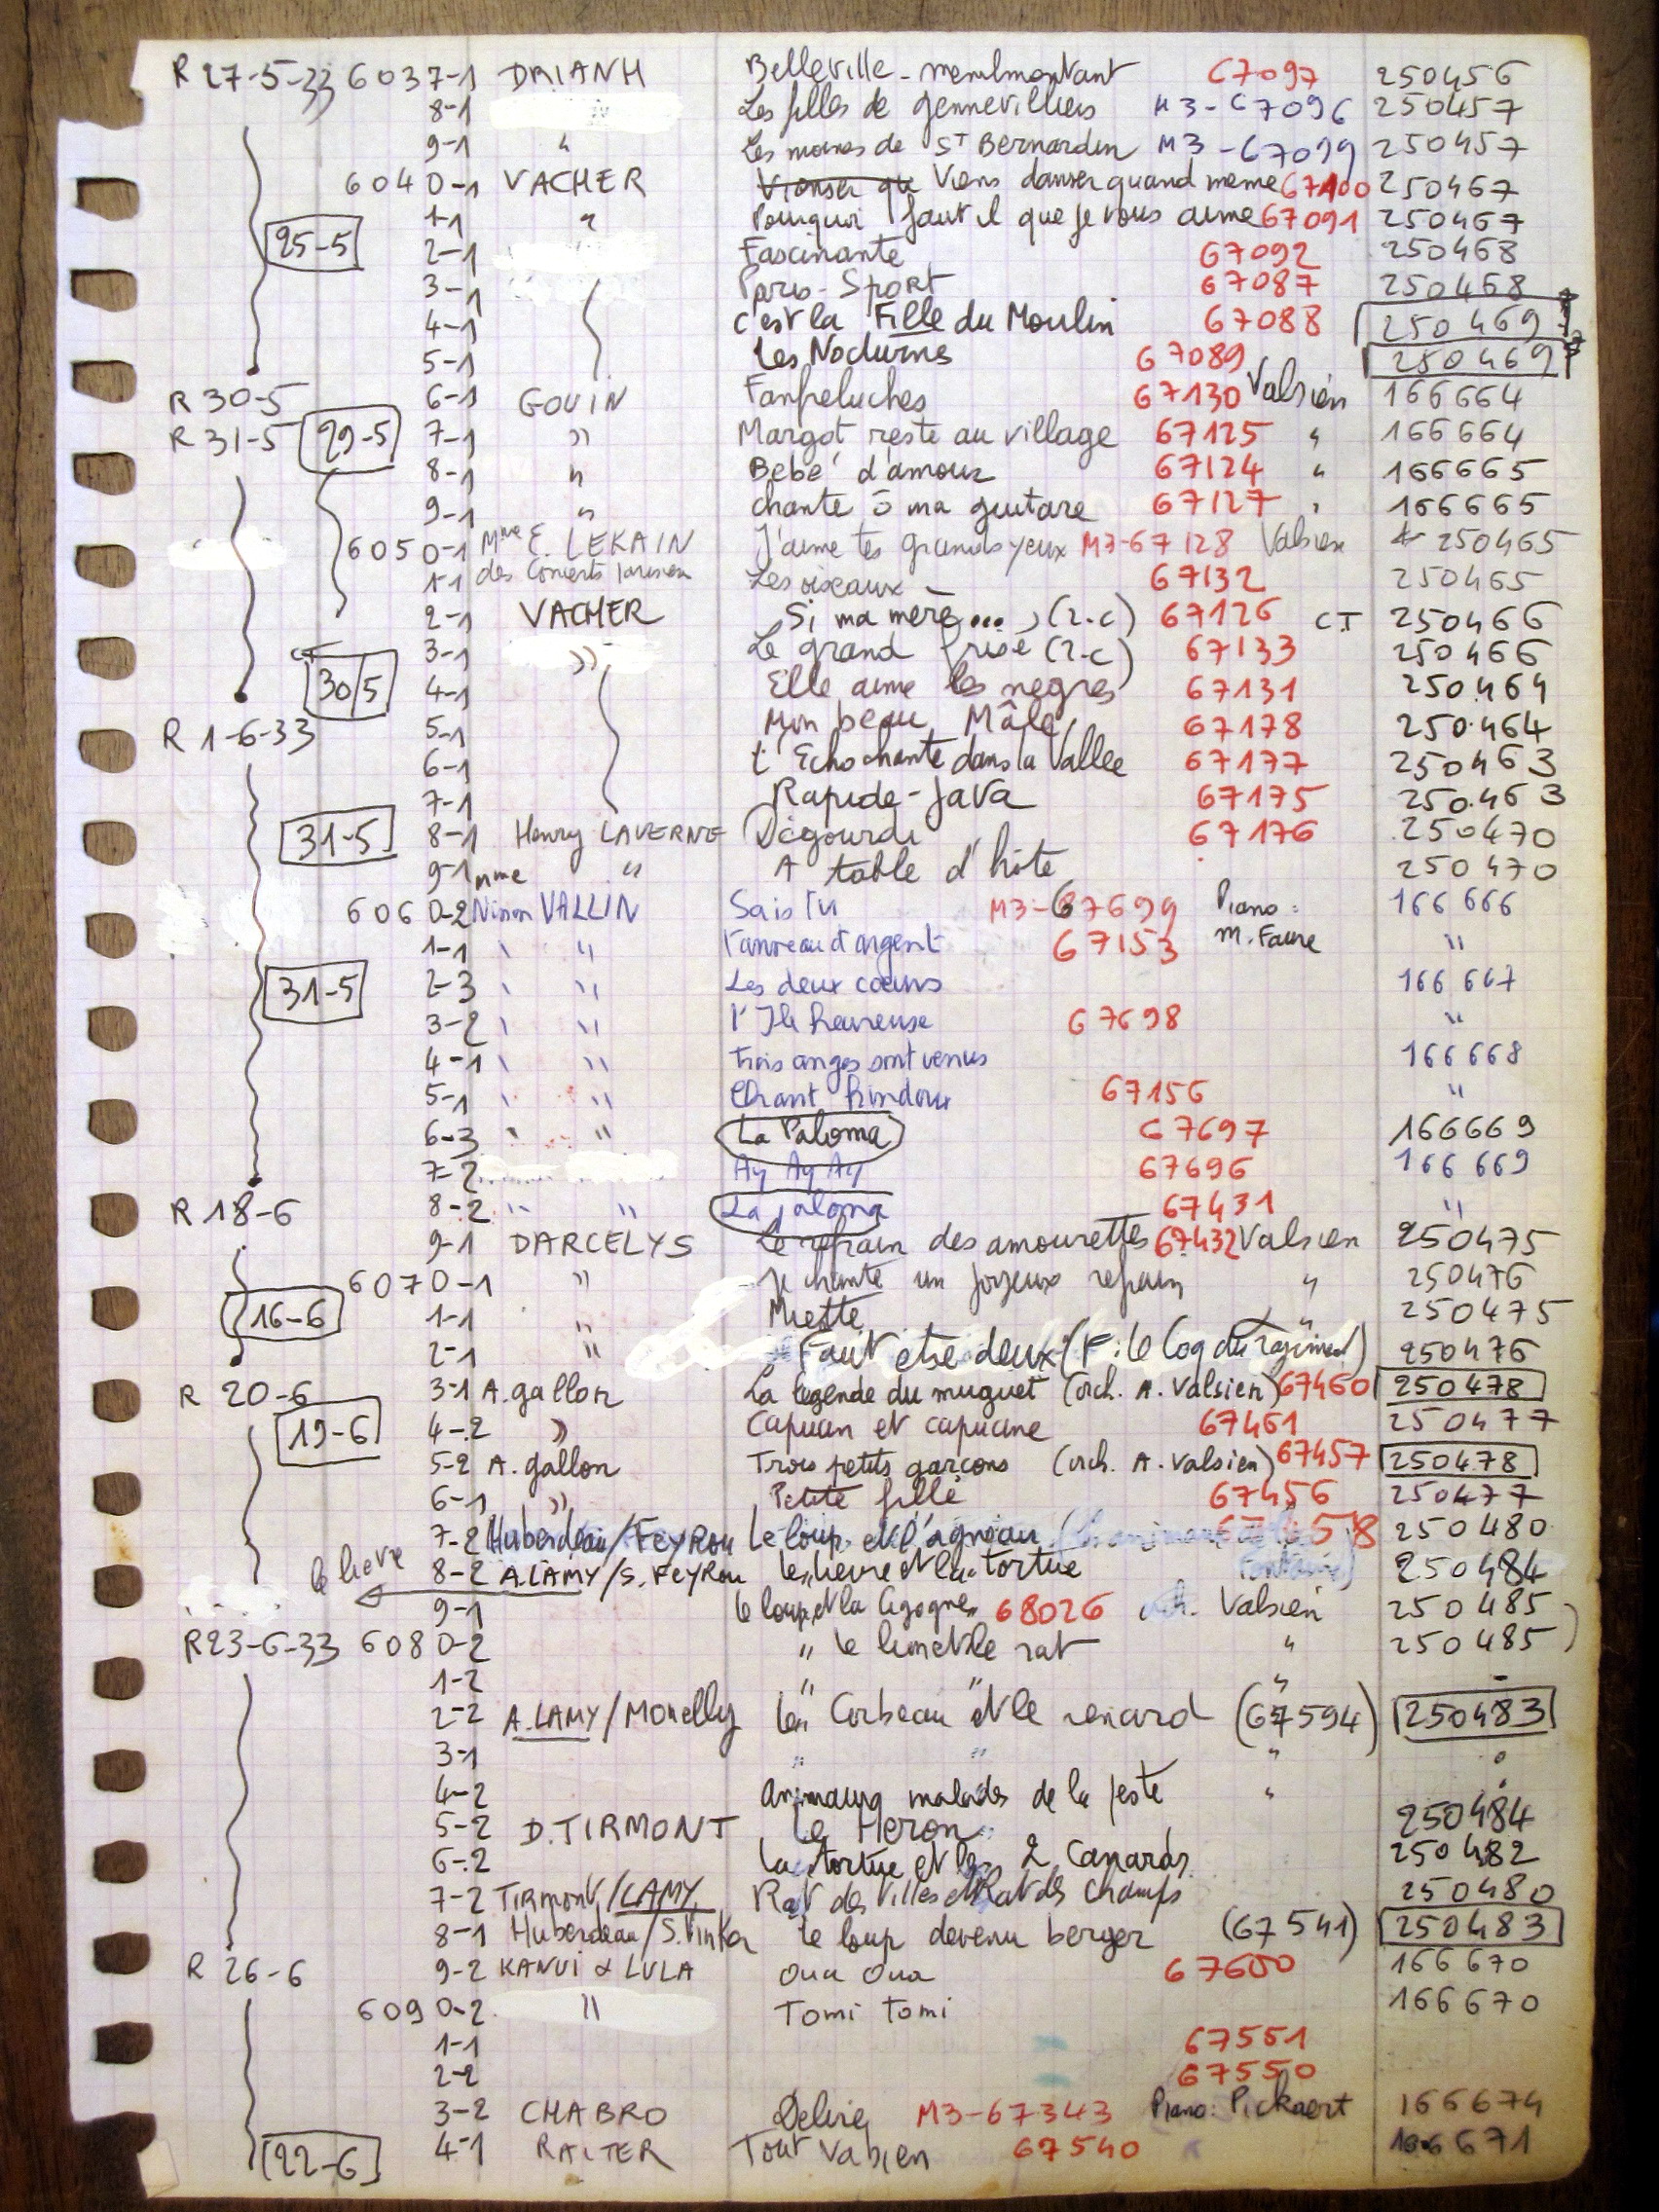 R 27-5-33 6037-1 DRIANH Belleville-menilmontant 67097 250456
8-1 " Les filles de gennevilliers M3-67096 250457
9-1 " Les moines de ST Bernardin M3-67099 250457
6040-1 VACHER Viens danser quand meme 67100 250467
1-1 " Pourquoi faut il que je vous aime 67091 250467
25-5
2-1 Fascinante 67092 250468
3-1 Paris-Sport 67087 250468
4-1 c'est la Fille du Moulin 67088 250469
5-1 Les Nocturnes 67089 250469
R 30-5 6-1 GOUIN Fanfreluches 67130 Valsien 166664
R 31-5 29-5 7-1 " Margot reste au village 67125 " 166664
8-1 " Bebé d'amour 67124 " 166665
9-1 " chante ô ma guitare 67127 " 166665
6050-1 Mme E. LEKAIN J'aime tes grands yeux M3-67128 Valsien 250465
1-1 des Concerts Parisien Les oiseaux 67132 250465
2-1 VACHER Si ma mère... (2-c) 67126 CT 250466
3-1 " Le grand frisé (2-c) 67133 250466
30/5 4-1 Elle aime les negres 67131 250464
R 1-6-33 5-1 Mon beau Mâle 67178 250.464
6-1 L'Echo chante dans la Vallée 67177 250463
7-1 Rapide-Java 67175 250.463
31-5 8-1 Henry LAVERNE Dégourdi 67176 250470
9-1 mme " A table d'hôte 250470
6060-2 Ninon VALLIN Sais Tu M3-67699 Piano: 166666
1-1 " " l'anneau d'argent 67153 M. Faure "
31-5 2-3 " " Les deux coeurs 166667
3-2 " " l'Ile heureuse 67698 "
4-1 " " trois anges sont venus 166668
5-1 " " Chant hindou 67156 "
6-3 " " La Paloma 67697 166669
7-2 Ay Ay Ay 67696 166669
R 18-6 8-2 " " La paloma 67431 "
9-1 DARCELYS Le refrain des amourettes 67432 Valsien 250475
6070-1 " Je chante un joyeux refrain " 250476
16-6 1-1 " Miette " 250475
2-1 " Faut etre deux (F: le Coq du régiment) 250476
R 20-6 3-1 A. gallon La legende du muguet (orch. A. Valsien) 67460 250478
19-6 4-2 " Capucin et capucine 67461 250477
5-2 A. gallon Trois petits garcons (orch. A. Valsien) 67457 250478
6-1 " Petite fille 67456 250477
7-2 Huberdeau/FEYROU Le loup et l'agneau 250480
le lievre 8-2 A.LAMY/S. FEYROU le lievre et la tortue 250484
9-1 le loup et la Cigogne 68026 orch. Valsien 250485
R 23-6-33 6080-2 " le lion et le rat " 250485
1-2 " "
2-2 A.LAMY/Monelly le Corbeau et le renard (67594) 250483
3-1 " " "
4-2 Animaux malades de la peste "
5-2 D.TIRMONT Le Heron 250484
6-2 La tortue et les 2 Canards 250482
7-2 Tirmont/LAMY Rat des villes et Rat des champs 250480
8-1 Huberdeau/S. le loup devenu berger (67541) 250483
R 26-6 9-2 KANUI & LULA Oua Oua 67600 166670
6090-2 " Tomi Tomi 166670
1-1 67551
2-2 67550
3-2 CHABRO Delire M3-67343 Piano: Pickaert 166674
22-6 4-1 RALTER Tout Va bien 67540 166671